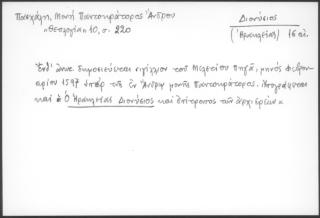 Πασχάλη, Μονή Παντοκράτορος Ἄνδρου
"Θεολογία" 10, σ. 220
Διονύσιος
(Ἡρακλείας) 16 αἰ.
Ἐνθ' ἄνωτ. δημοσιεύεται σιγίλλιον τοῦ Μελετίου Πηγᾶ, μηνός Φεβρου
αρίου 1597 ὑπέρ τῆς ἐν Ἄνδρῳ μονῆς Παντοκράτορος. Ὑπογράφεται
καί ὁ Ὁ Ἡρακλείας Διονύσιος καί ἐπίτροπος τῶν ἀρχιερέων"